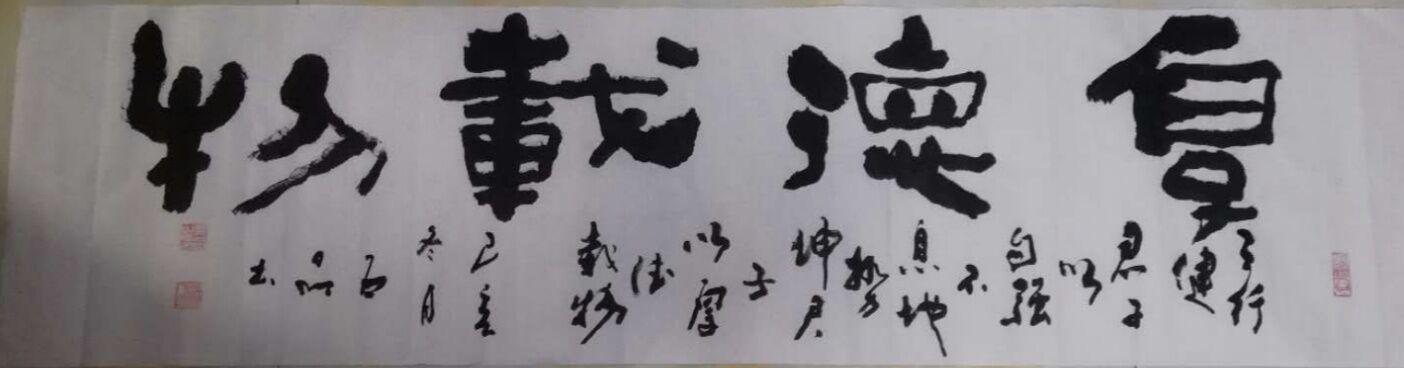 厚德載物
天行
健
君子
以
自强
不
息地
势
坤君
子
以厚
德
载物
己亥
冬月
品
书